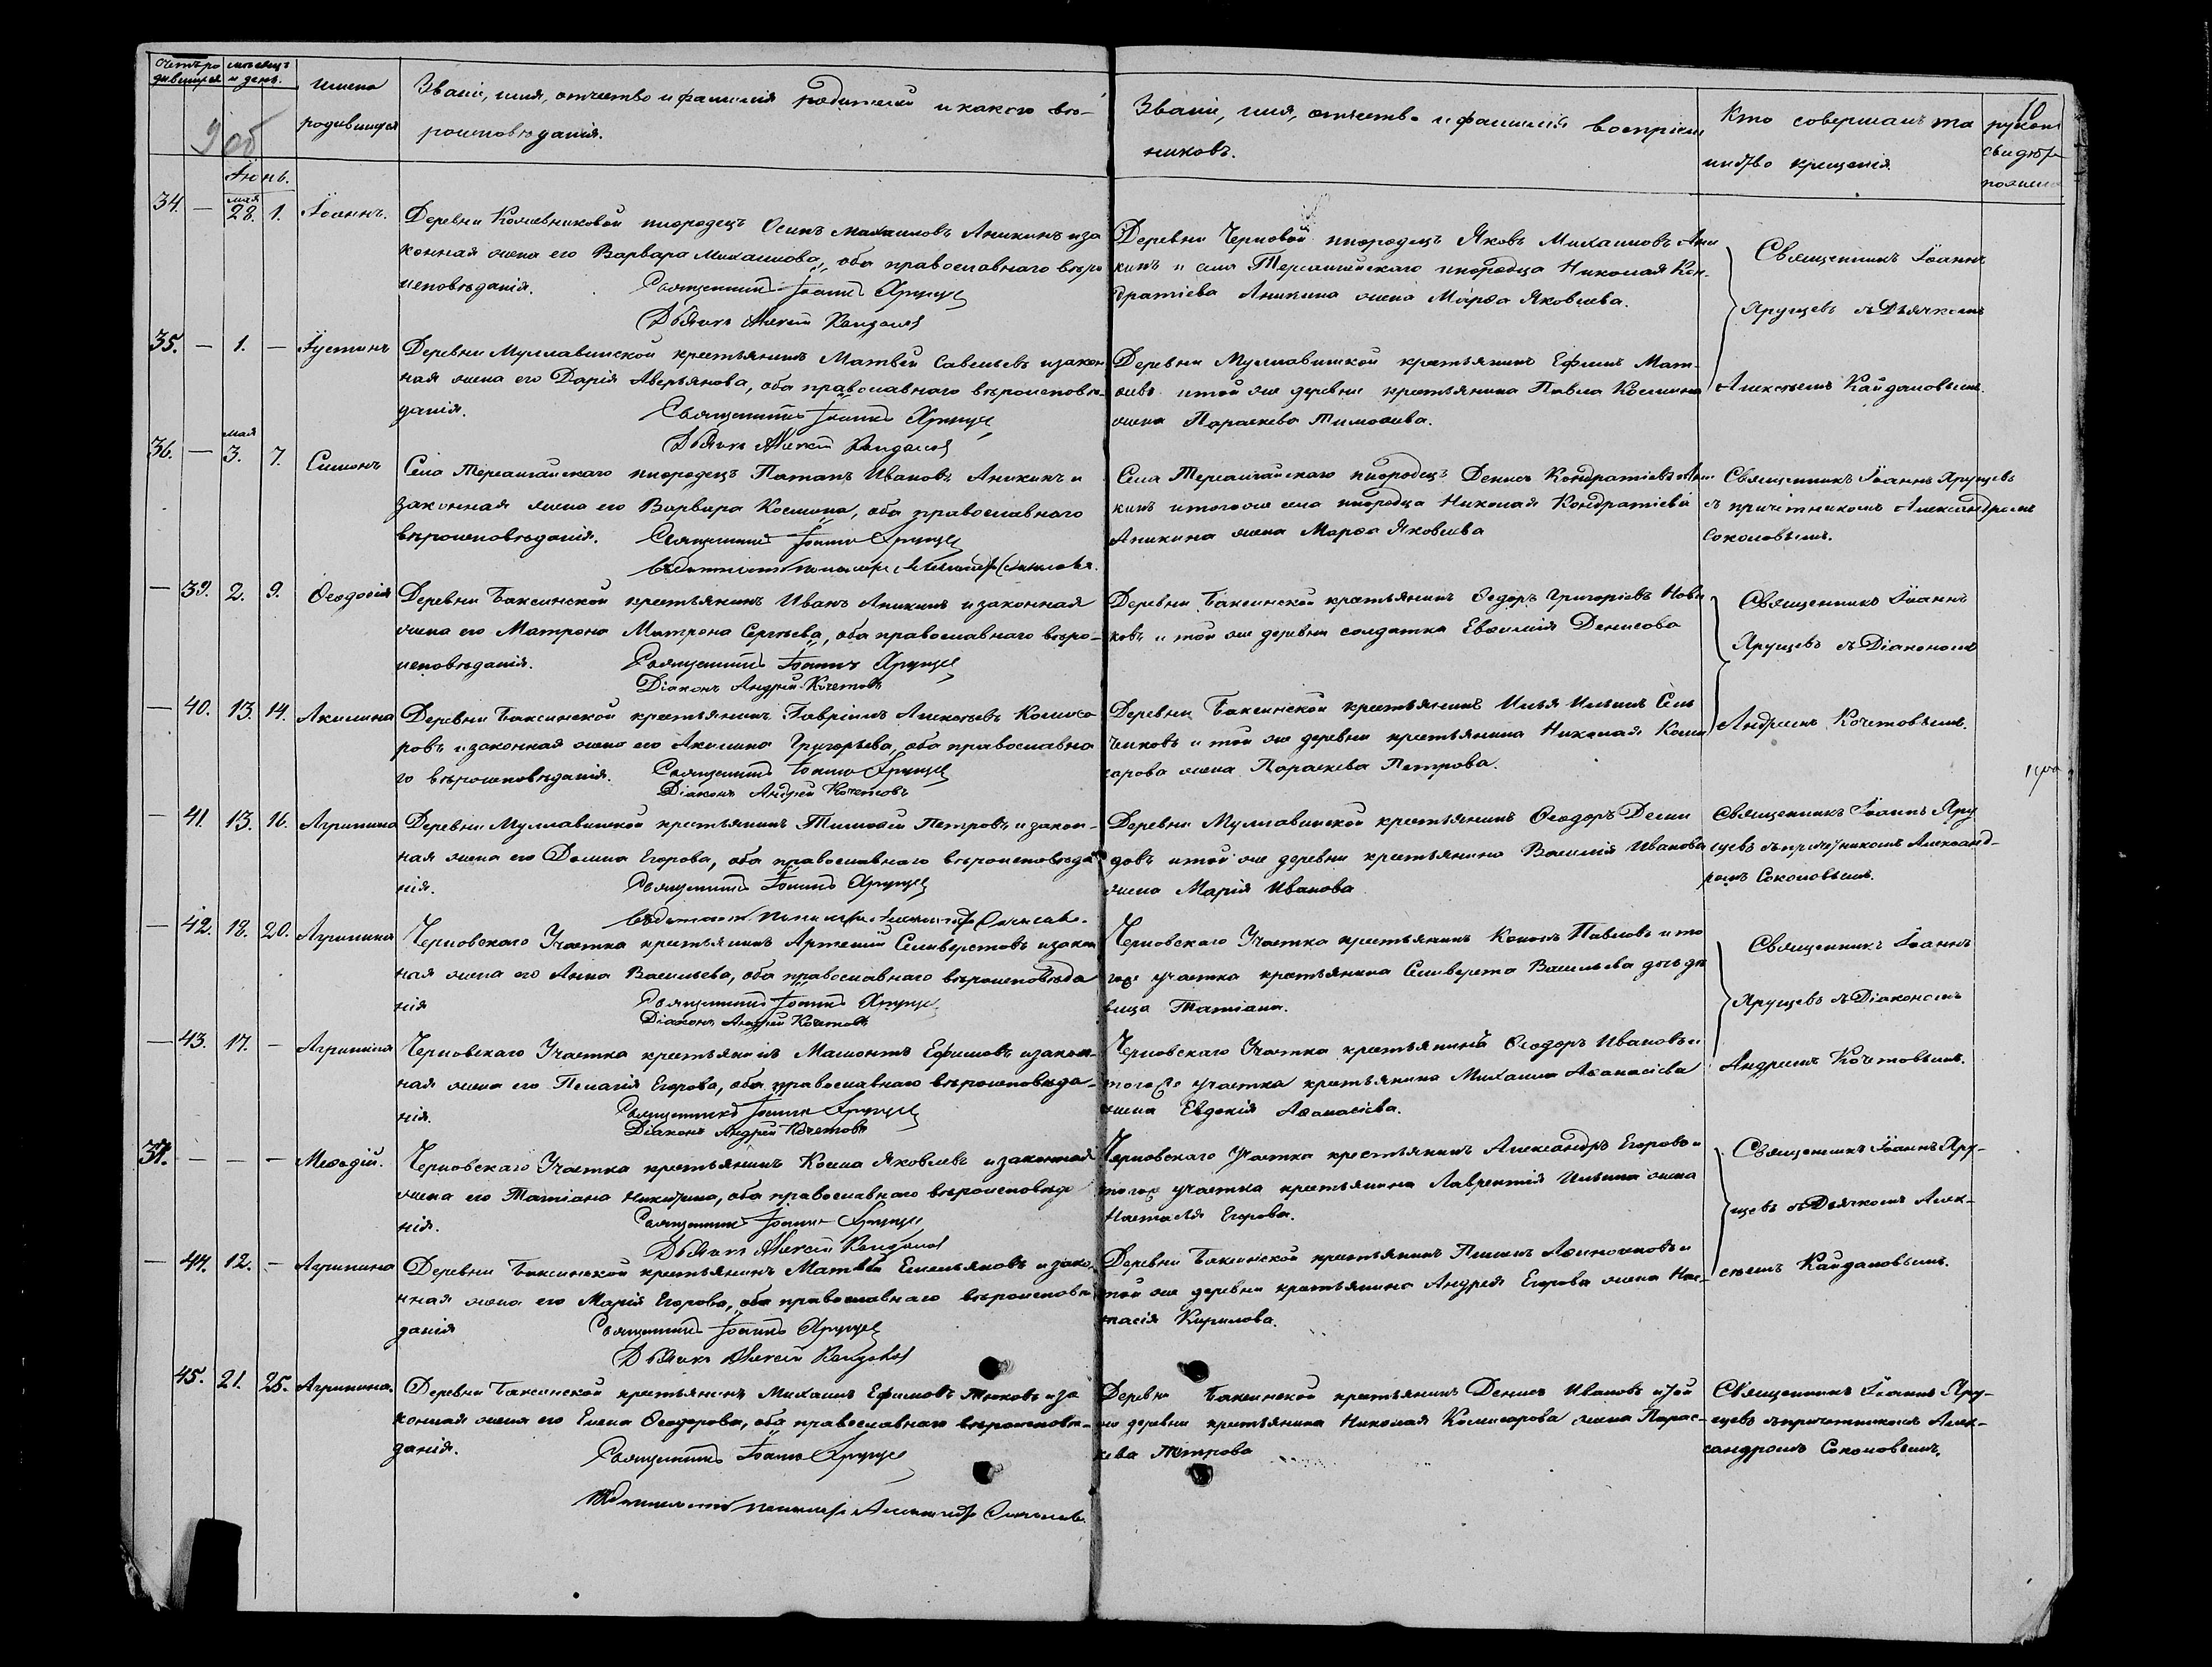 Счетъ ро
дившихся
мѣсяцъ
и день.
Имена
родившихся
Званіе, имя, отчество и фамилія родителей и какого вѣ-
роисповѣданія.
Званіе, имя, отчество и фамилія воспріем
никовъ.
Кто совершалъ та
инство крещенія.
10
9 об
Іюнь.
34. — мая 28. 1. Іоаннъ.
Деревни Кожевниковой инородецъ Осипъ Михаиловъ Аникинъ и за
конная жена его Варвара Михаилова, оба православнаго вѣро
исповѣданія.
Священникъ Іоаннъ Ярущевъ
Дьячокъ Алексѣй Кайдаловъ
Деревни Черновой инородецъ Яковъ Михаиловъ Ани
кинъ и села Терсалгайскаго инородца Николая Кон-
дратіева Аникина жена Марѳа Яковлева.
Священникъ Іоаннъ
Ярущевъ съ Дьячкомъ
Алексѣемъ Кайдаловымъ.
35. — 1. — Іустинъ
Деревни Муллавинской крестьянинъ Матвей Савельевъ и закон
ная жена его Дарія Аверьянова, оба православнаго вѣроисповѣ-
данія.
Священникъ Іоаннъ Ярущевъ
Дьячокъ Алексѣй Кайдаловъ
Деревни Муллавинской крестьянинъ Ефимъ Мат-
ѳевъ и той же деревни крестьянина Павла Косьмина
жена Параскева Тимоѳеева.
36. — мая 3. 7. Симонъ
Села Терсалгайскаго инородецъ Патапъ Ивановъ Аникинъ и
законная жена его Варвара Косьмина, оба православнаго
вѣроисповѣданія.
Священникъ Іоаннъ Ярущевъ
Села Терсалгайскаго инородецъ Денисъ Кондратіевъ Ани
кинъ и того же села инородца Николая Кондратіева
Аникина жена Марѳа Яковлева
Священникъ Іоаннъ Ярущевъ
съ причетникомъ Александромъ
Соколовымъ.
— 39. 2. 9. Ѳеодосія
Деревни Баксинской крестьянинъ Иванъ Аникинъ и законная
жена его Матрона Матрона Сергѣева, оба православнаго вѣро-
исповѣданія.
Священникъ Іоаннъ Ярущевъ
Діаконъ Андрей Кочетовъ
Деревни Баксинской крестьянинъ Ѳедоръ Григорьевъ Нови
ковъ и той же деревни солдатка Евѳимія Денисова
Священникъ Іоаннъ
Ярущевъ съ Діакономъ
Андреемъ Кочетовымъ.
— 40. 13. 14. Акилина
Деревни Баксинской крестьянинъ Гавріилъ Алексѣевъ Комисса
ровъ и законная жена его Акилина Григорьева, оба православна
го вѣроисповѣданія.
Священникъ Іоаннъ Ярущевъ
Діаконъ Андрей Кочетовъ
Деревни Баксинской крестьянинъ Илья Ильинъ Сель
чиковъ и той же деревни крестьянина Николая Коми
сарова жена Параскева Петрова.
— 41. 13. 16. Агрипина
Деревни Муллавинской крестьянинъ Тимоѳей Петровъ и закон-
ная жена его Домна Егорова, оба православнаго вѣроисповѣда
нія.
Священникъ Іоаннъ Ярущевъ
Деревни Муллавинской крестьянинъ Ѳеодоръ Деми
довъ и той же деревни крестьянина Василія Иванова
жена Марія Иванова
Священникъ Іоаннъ Яру
щевъ съ причетникомъ Александ-
ромъ Соколовымъ.
— 42. 18. 20. Агрипина
Черновскаго Участка крестьянинъ Артемій Селиверстовъ и закон
ная жена его Анна Васильева, оба православнаго вѣроисповѣда
нія
Священникъ Іоаннъ Ярущевъ
Діаконъ Андрей Кочетовъ
Черновскаго Участка крестьянинъ Кононъ Павловъ и то
гоже участка крестьянина Селиверста Васильева дочь дѣ
вица Татіана.
Священникъ Іоаннъ
Ярущевъ съ Діакономъ
Андреемъ Кочетовымъ.
— 43. 17. — Агрипина
Черновскаго Участка крестьянинъ Мамонтъ Ефимовъ и закон-
ная жена его Пелагія Егорова, оба православнаго вѣроисповѣда-
нія.
Священникъ Іоаннъ Ярущевъ
Діаконъ Андрей Кочетовъ
Черновскаго Участка крестьянинъ Ѳеодоръ Ивановъ и
тогоже участка крестьянина Михаила Аѳанасіева
жена Евдокія Аѳанасіева.
37. — — — Меѳодій.
Черновскаго Участка крестьянинъ Косма Яковлевъ и законная
жена его Татіана Никитина, оба православнаго вѣроисповѣда
нія.
Священникъ Іоаннъ Ярущевъ
Дьячокъ Алексѣй Кайдаловъ
Черновскаго Участка крестьянинъ Александръ Егоровъ и
тогоже участка крестьянина Лаврентія Ильина жена
Настасья Егорова.
Священникъ Іоаннъ Яру-
щевъ съ Дьячкомъ Алек-
сѣемъ Кайдаловымъ.
— 44. 12. — Агрипина
Деревни Баксинской крестьянинъ Матвѣй Емельяновъ и зако
нная жена его Марія Егорова, оба православнаго вѣроисповѣ
данія
Священникъ Іоаннъ Ярущевъ
Дьячокъ Алексѣй Кайдаловъ
Деревни Баксинской крестьянинъ Пименъ Аѳиногеновъ и
той же деревни крестьянина Андрея Егорова жена Нас-
тасія Кирилова.
45. 21. 25. Агрипина.
Деревни Баксинской крестьянинъ Михаилъ Ефимовъ Тюковъ и за
конная жена его Елена Ѳеодорова, оба православнаго вѣроисповѣ-
данія.
Священникъ Іоаннъ Ярущевъ
Деревни Баксинской крестьянинъ Денисъ Ивановъ и той
же деревни крестьянина Николая Комисарова жена Парас-
кева Петрова
Священникъ Іоаннъ Яру-
щевъ съ причетникомъ Алек-
сандромъ Соколовымъ.